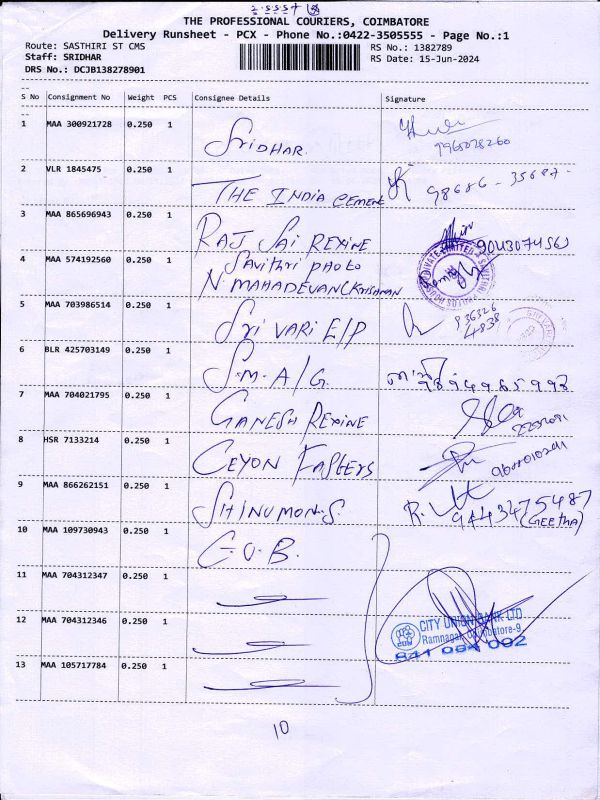 THE PROFESSIONAL COURIERS, COIMBATORE
Delivery Runsheet - PCX - Phone No.:0422-3505555 - Page No.:1
Route: SASTHIRI ST CMS
RS No.: 1382789
Staff: SRIDHAR
RS Date: 15-Jun-2024
DRS No.: DCJB138278901
S No Consignment No Weight PCS Consignee Details Signature
1 MAA 300921728 0.250 1 SRIDHAR
2 VLR 1845475 0.250 1 THE INDIA CEMENT 98686-35687-
3 MAA 865696943 0.250 1 RAJ SAI REXINE
4 MAA 574192560 0.250 1 SAVITHRI PHOTO
N. MAHADEVAN (KRISHNAN
5 MAA 703986514 0.250 1 SRI VARI E/P 936326
4838
6 BLR 425703149 0.250 1 S.M.A/G. 9894985998
7 MAA 704021795 0.250 1 GANESH REXINE
8 HSR 7133214 0.250 1 CEYON FASTERS
9 MAA 866262151 0.250 1 SHINUMON.S. 9443475487
(GEETHA)
10 MAA 109730943 0.250 1 C.U.B.
11 MAA 704312347 0.250 1
12 MAA 704312346 0.250 1 CITY UNION BANK LTD
Ramnagar, Coimbatore-9
641 054 002
13 MAA 105717784 0.250 1
10